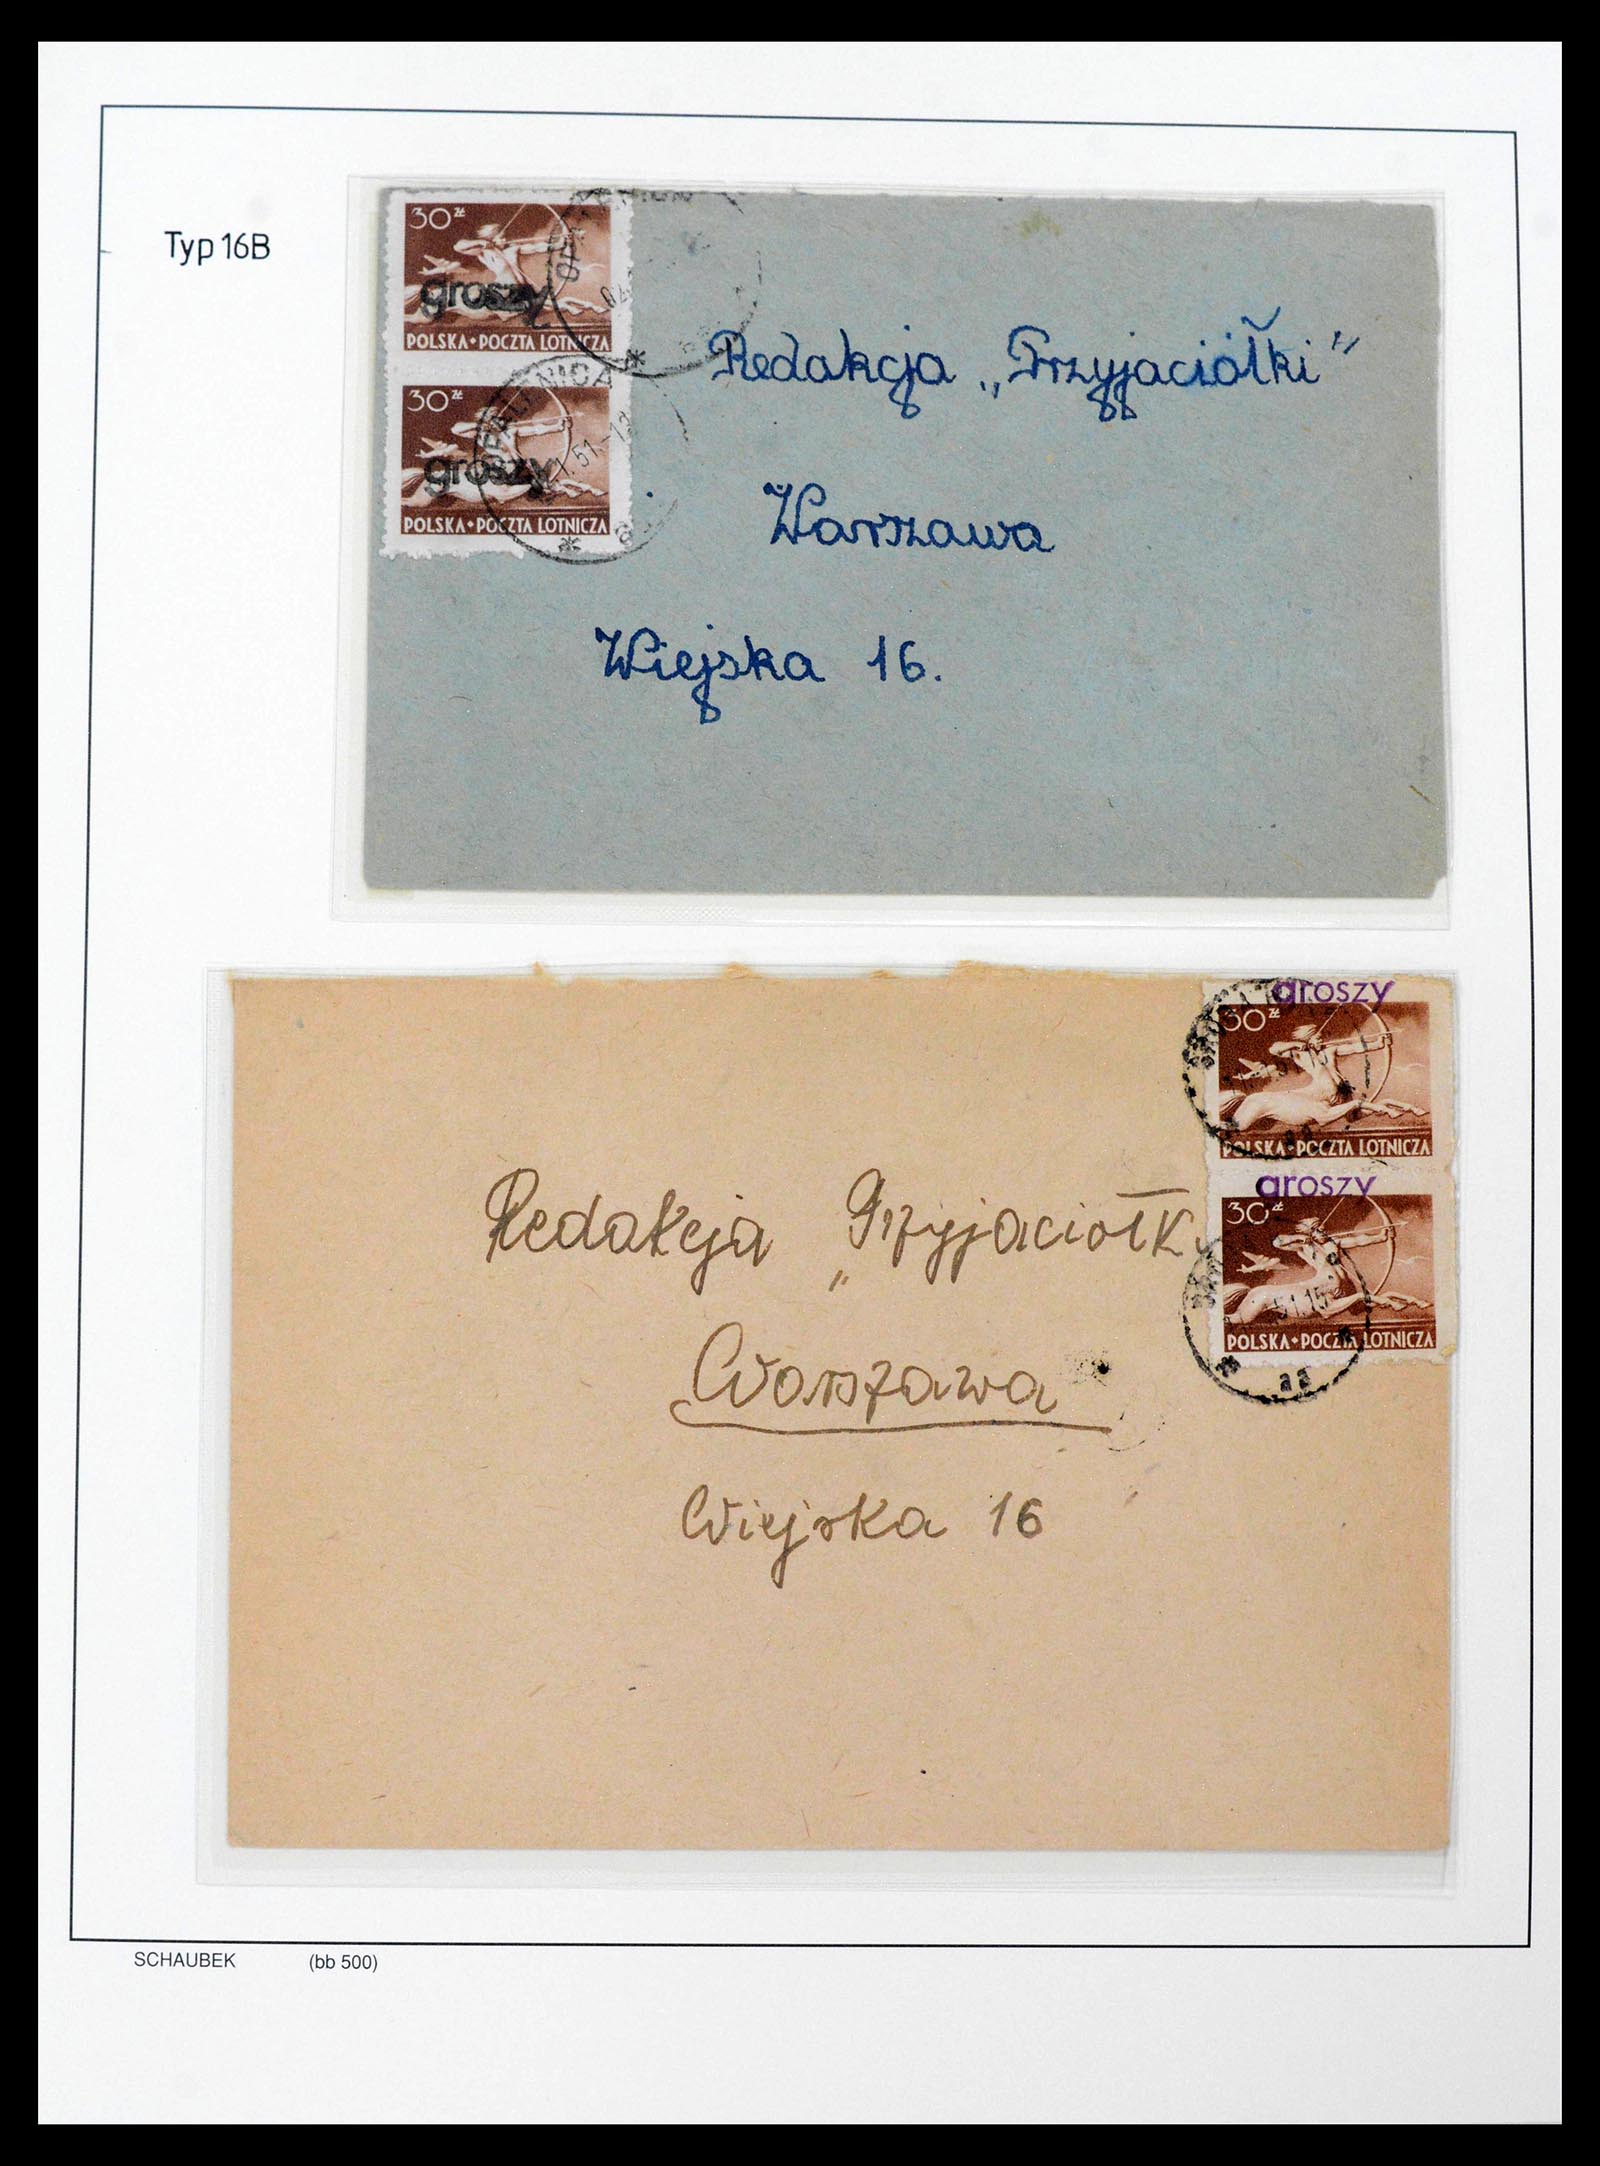 Typ 16B
30 zł
groszy
POLSKA • POCZTA LOTNICZA
30 zł
groszy
POLSKA • POCZTA LOTNICZA
FALENICA
51.-13
a
Redakcja „Przyjaciółki"
Warszawa
Wiejska 16.
groszy
30 zł
POLSKA • POCZTA LOTNICZA
groszy
30 zł
POLSKA • POCZTA LOTNICZA
51.15
aa
Redakcja „Przyjaciółki
Warszawa
Wiejska 16
SCHAUBEK (bb 500)